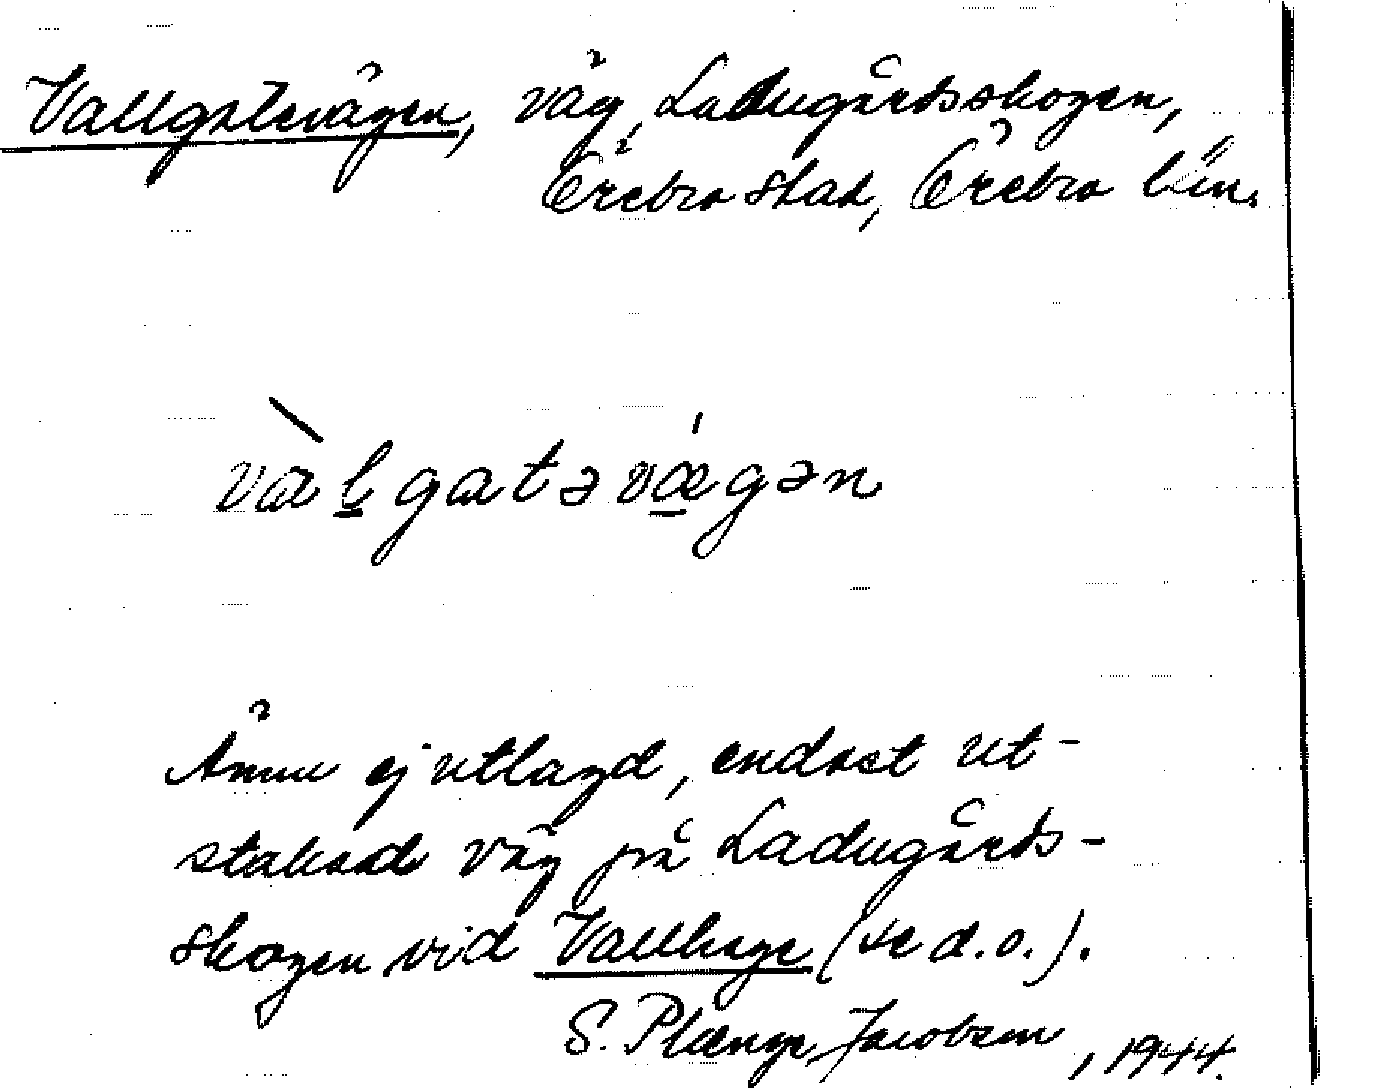 Vallgatevägen, väg, Ladugårdsskogen,
Örebro stad, Örebro län.
va̠l̠gatəvæ̠gən
Ännu ej utlagd, endast ut-
stakad väg på Ladugårds-
skogen vid Vallhage (se d.o.).
S. Plænge Jacobson, 1944.